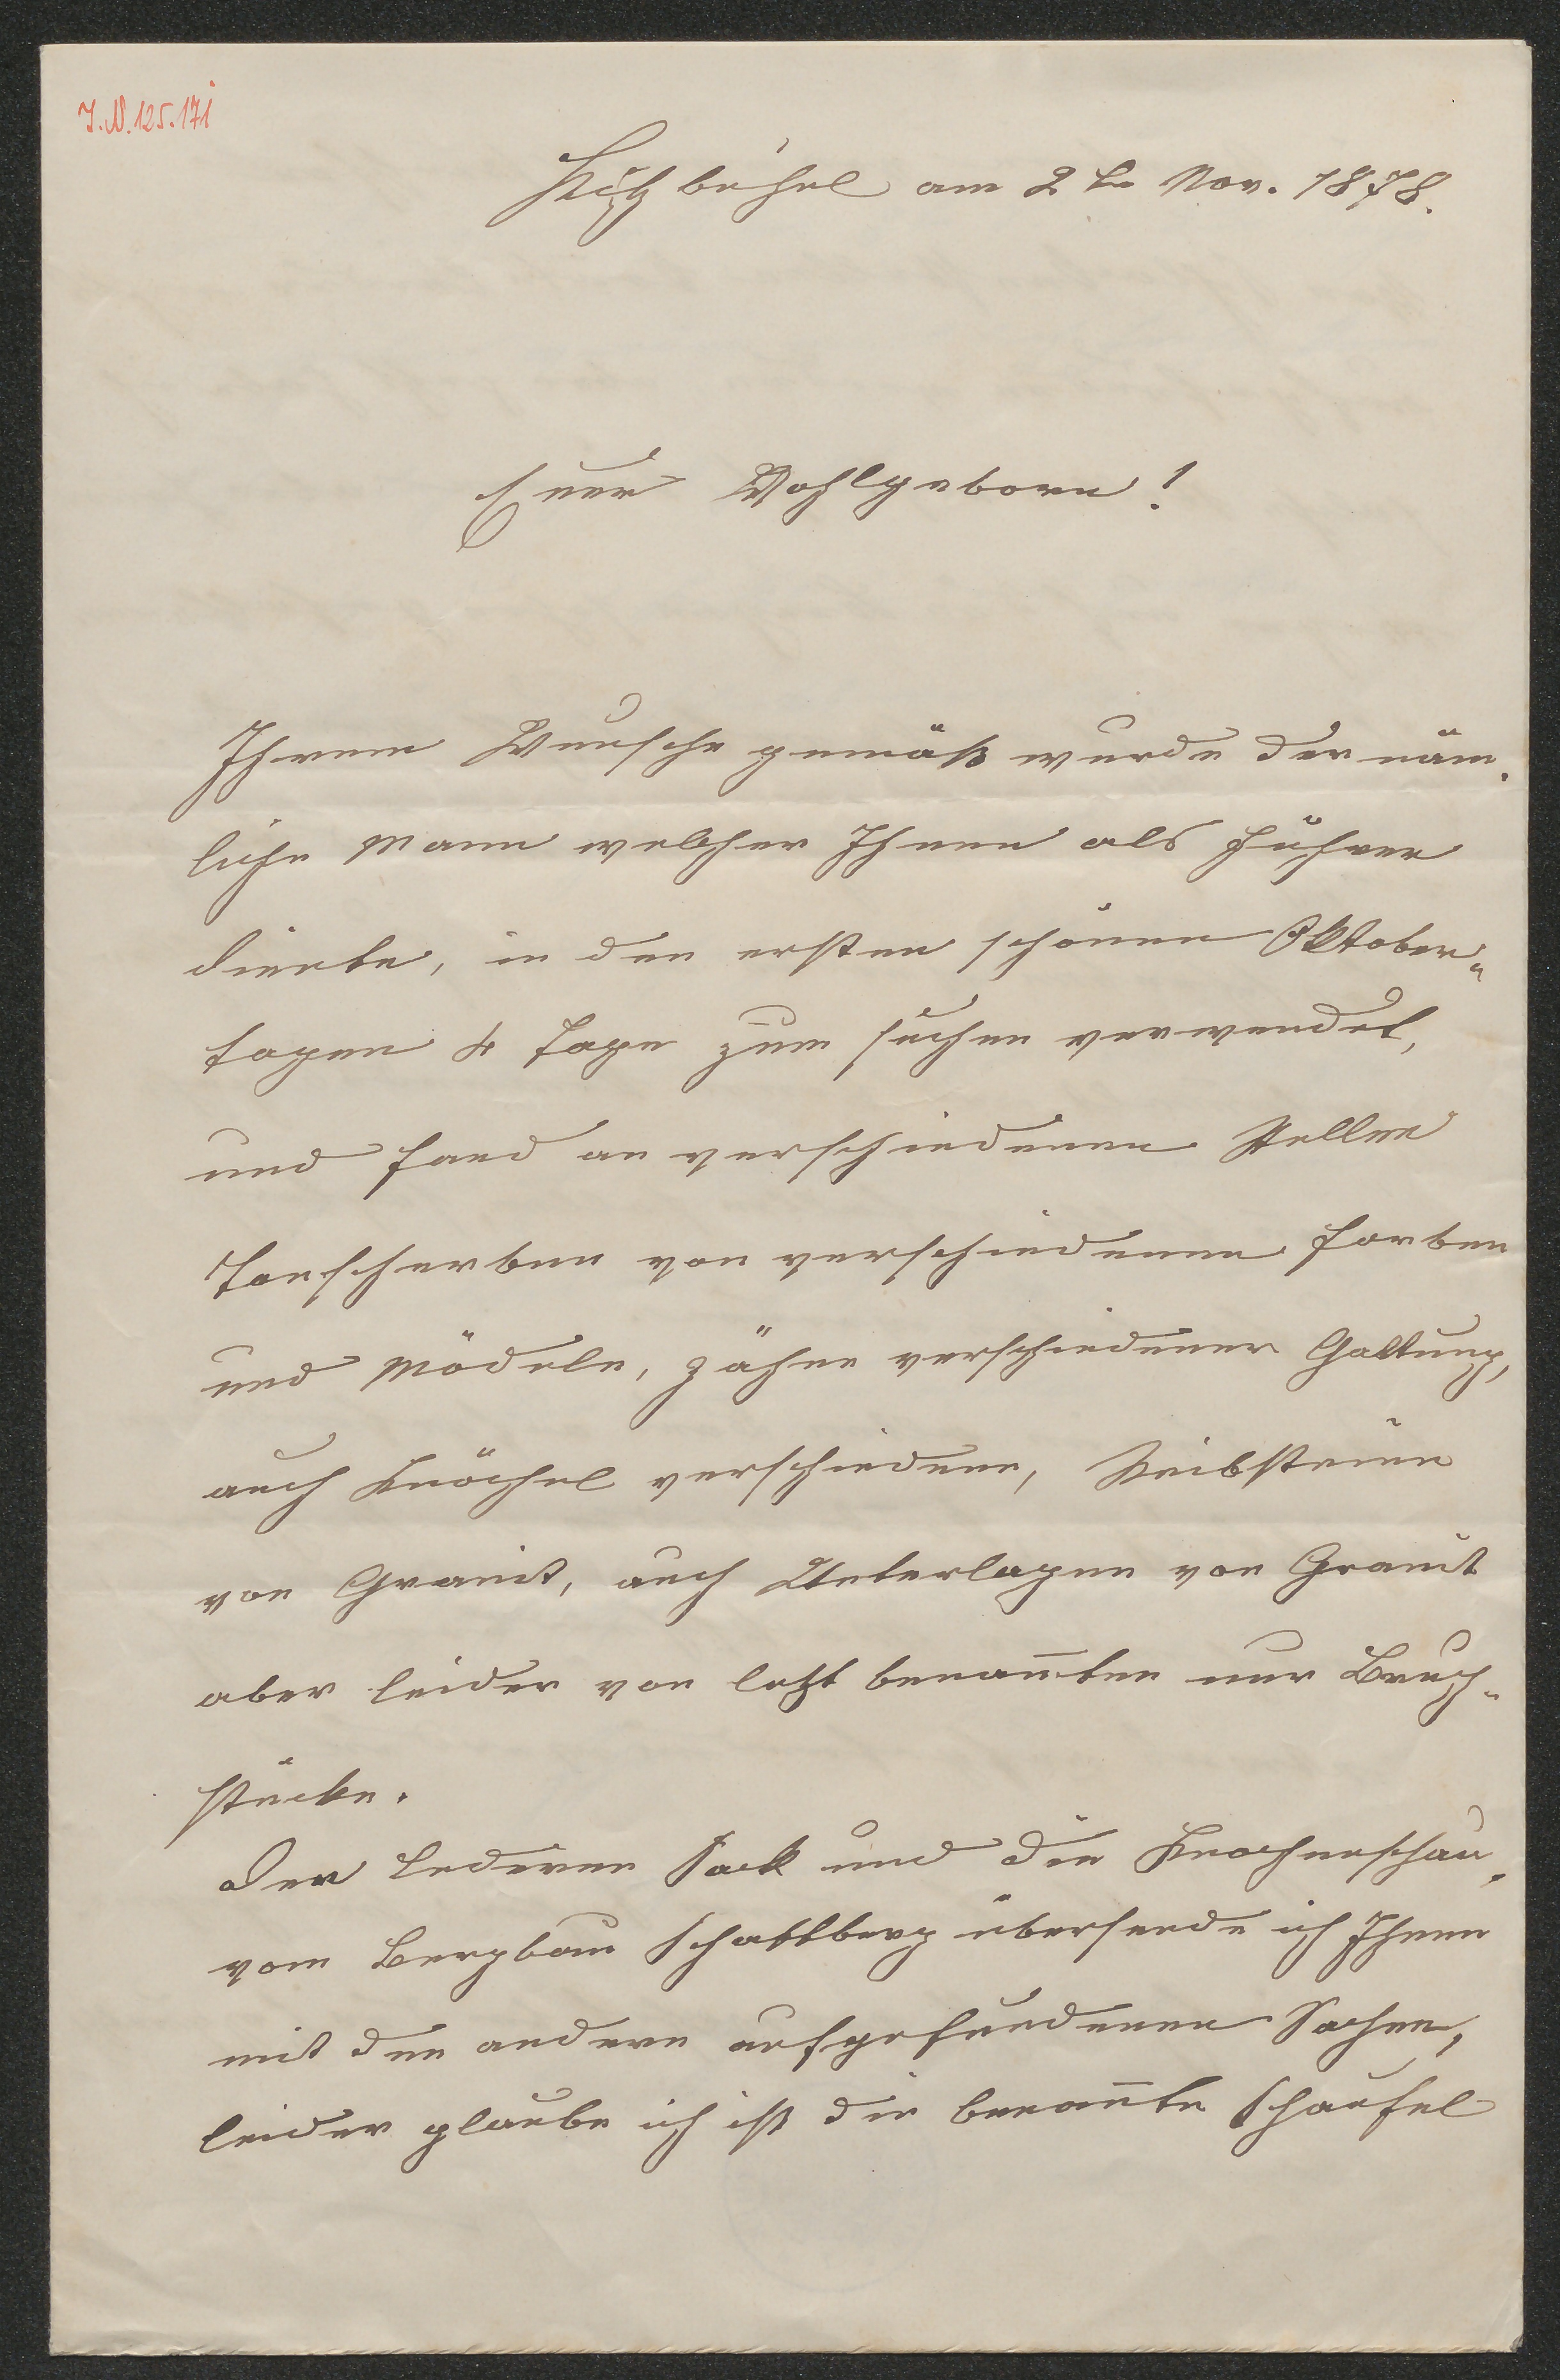 J.N. 125.171
Kitzbühel am 2 te Nov. 1878.
Euer Wohlgeborn!
Ihrem Wunsche gemäß wurde der näm-
liche Mann welcher Ihnen als Führer
diente, in den ersten schönen Oktober-
tagen 4 Tage zum suchen verwendet,
und fand an verschiedenen Stellen
Tonscherben von verschiedenen Farben
und Mödeln, Zähne verschiedener Gattung,
auch Knöchel verschiedene, Reibsteine
von Granit, auch Unterlagen von Granit
aber leider von letzt benan̄ten nur Bruch-
stücke.
Den ledernen Sack und die Knochenschau-
vom Bergbau Schattberg übersende ich Ihnen
mit den andern aufgefundenen Sachen,
leider glaube ich ist die benan̄te Schaufel